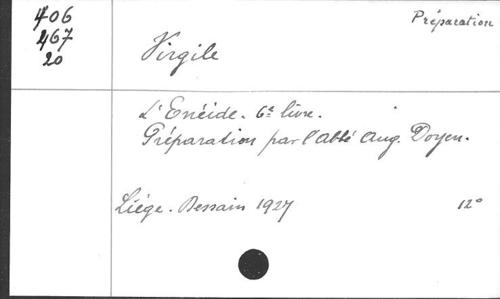 406
467
20
Préparation
Virgile
L'Enéide. 6e livre.
Préparation par l'Abbé Aug. Doyen.
Liége. Dessain 1927 12°